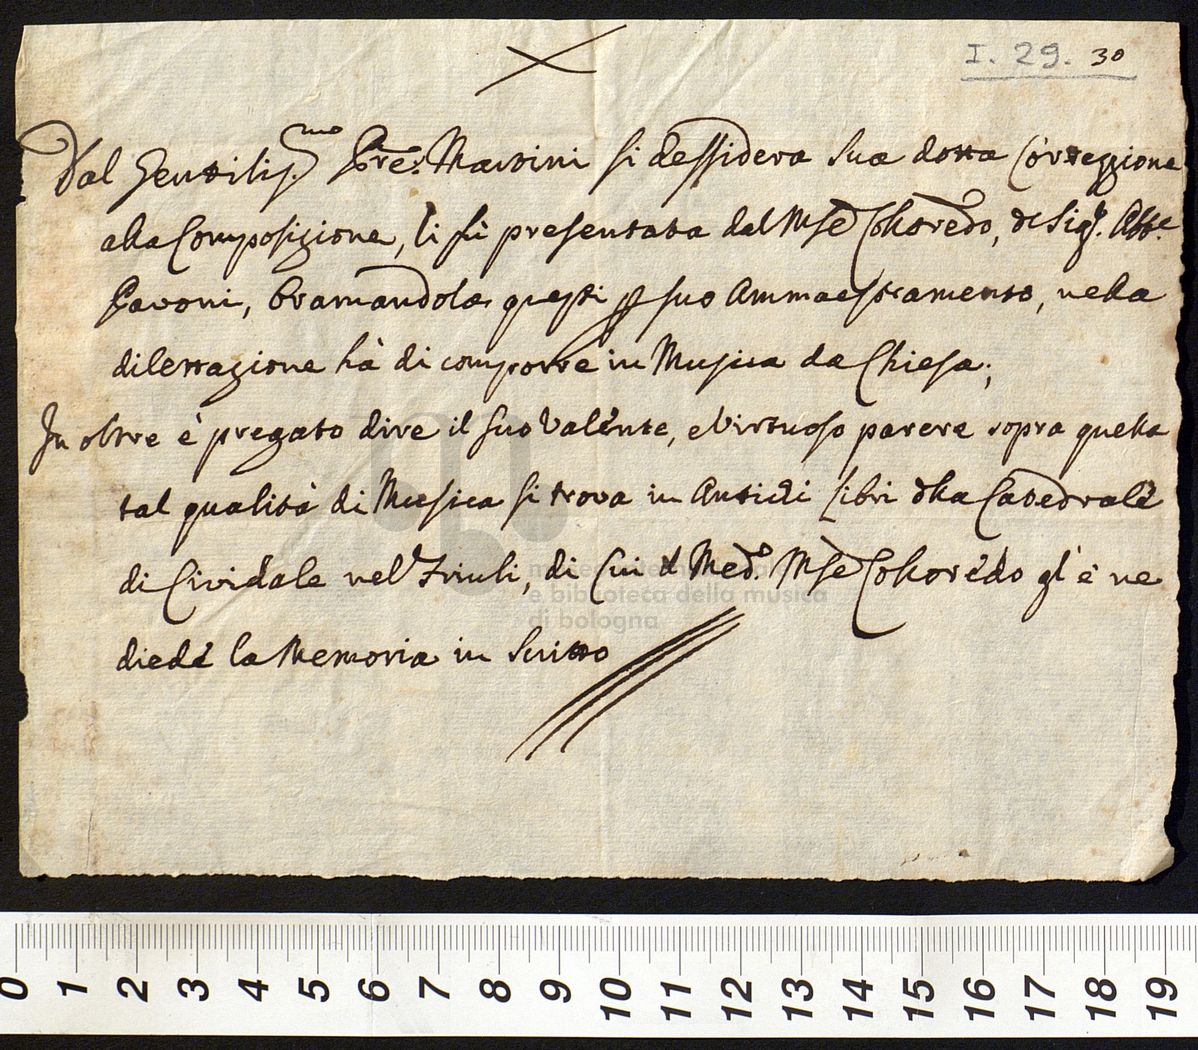 I. 29. 30
Dal Gentiliss.mo Pre: Martini si dessidera sua dotta Correzzione
alla Composizione, li fù presentata dal Mse Colloredo, de Sigr. Abbe.
Pavoni, bramandola questi p suo Ammaestramento, nella
dilettazione hà di comporre in Musica da Chiesa;
In oltre è pregato dire il suo Valente, e Virtuoso parere sopra quella
tal qualità di Musica si trova in Antichi Libri dlla Catedrale
di Cividale nel Friuli, di cui d Medo. Mse Colloredo gl' è ne
diede la Memoria in scritto
museo internazionale
e biblioteca della musica
di bologna
0 1 2 3 4 5 6 7 8 9 10 11 12 13 14 15 16 17 18 19